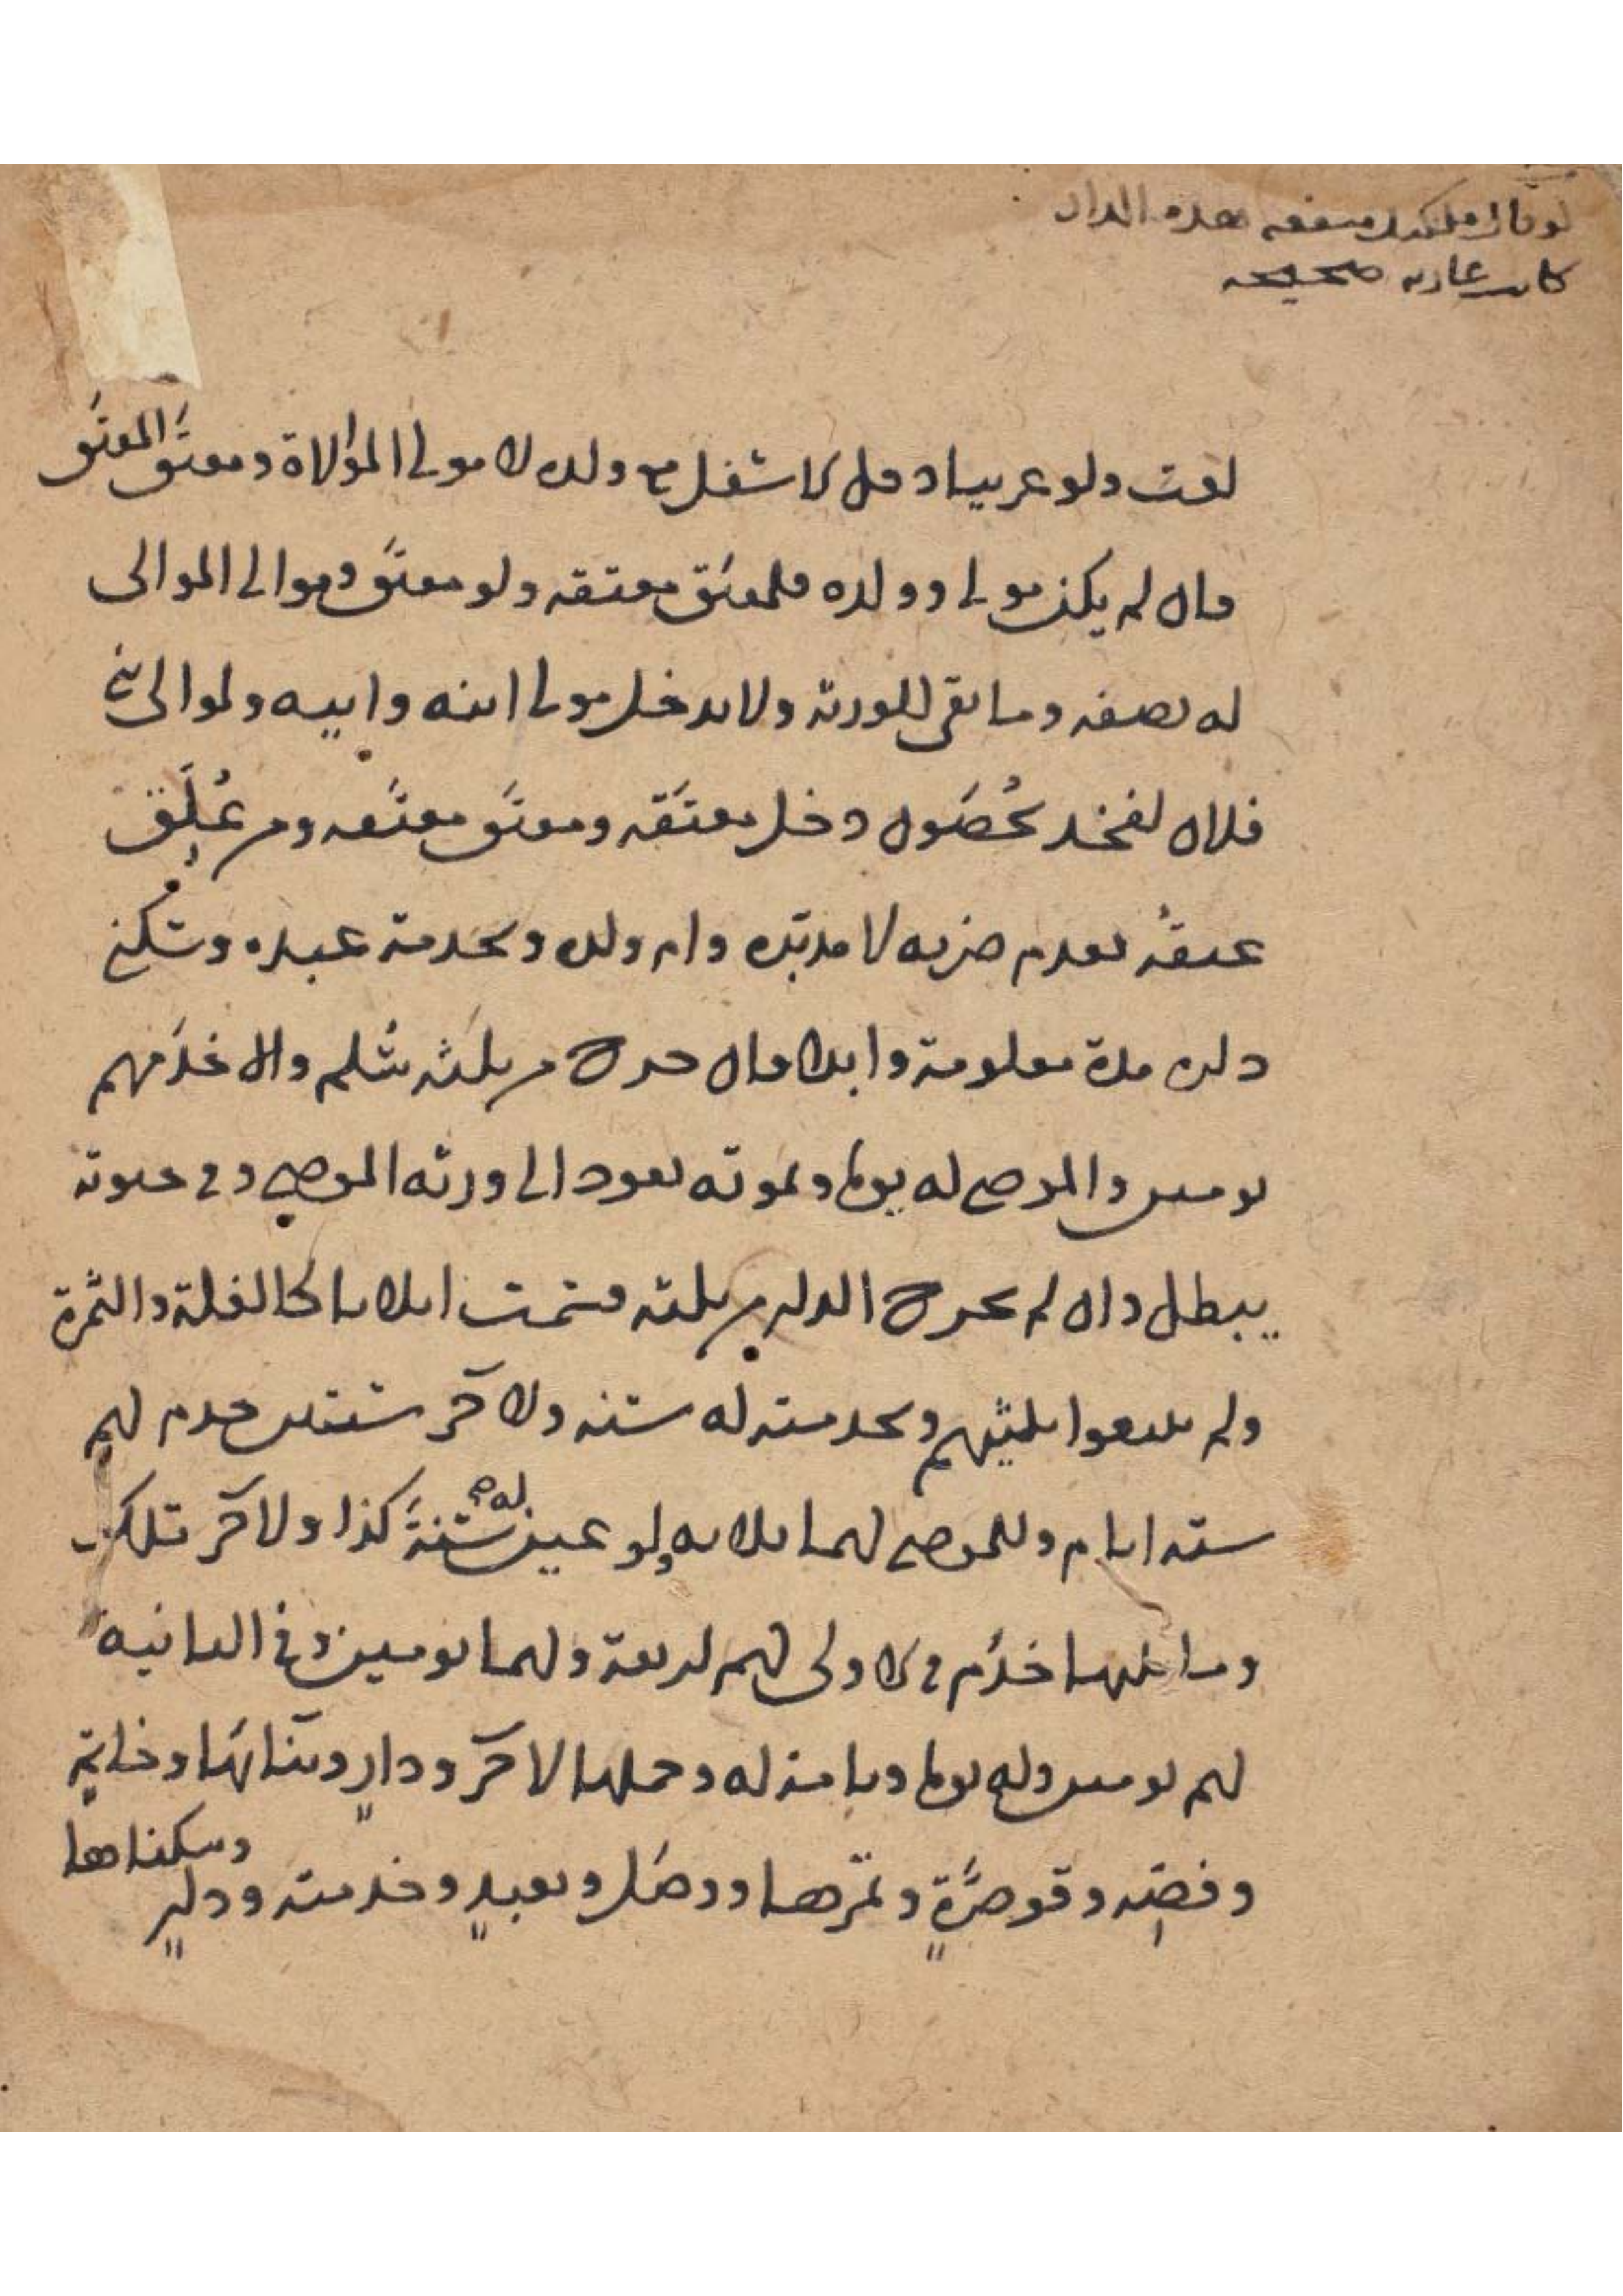 لو قال ملكتك منفعه هذه الدار
كانت عاريه صحيحه
لغت ولو عربيا دخل الاسفل مع ولده لا مولى الموالاة ومعتق المعتق
فان لم يكن مولى وولده فلمعتق معتقه ولو معتق وموالى الموالى
له نصفه وما بقى للورثة ولا يدخل مولى ابنه وابيه ولموالى بنى
فلان لفخذ يحصون دخل معتقه ومعتق معتقه ومن علق
عتقه بعدم ضربه لا مدبره وام ولده وبخدمة عبده وسكنى
داره مدة معلومة وابدا فان خرج من ثلثه سلم والا خدمهم
يومين والموصى له يوما وبموته يعود الى ورثه الموصى وفي حيوته
يبطل وان لم يخرج الدار من ثلثه قسمت اثلاثا كالغلة والثمرة
ولم يبيعوا ثلثيهم وبخدمته له سنه ولاخر سنتين خدم لهم
سته ايام وللموصى لهما ثلاثه ولو عين له سنة كذا ولاخر تلك
وما خدم في الاولى لهم اربعة ولهما يومين وفي الثانيه
لهم يومين وله يوما وبامته له وحملها لاخر ودار وبنائها وخاتم
وفصه وقوصرة وتمرها ونصل وبعبد وخدمته ودار
وسكناها